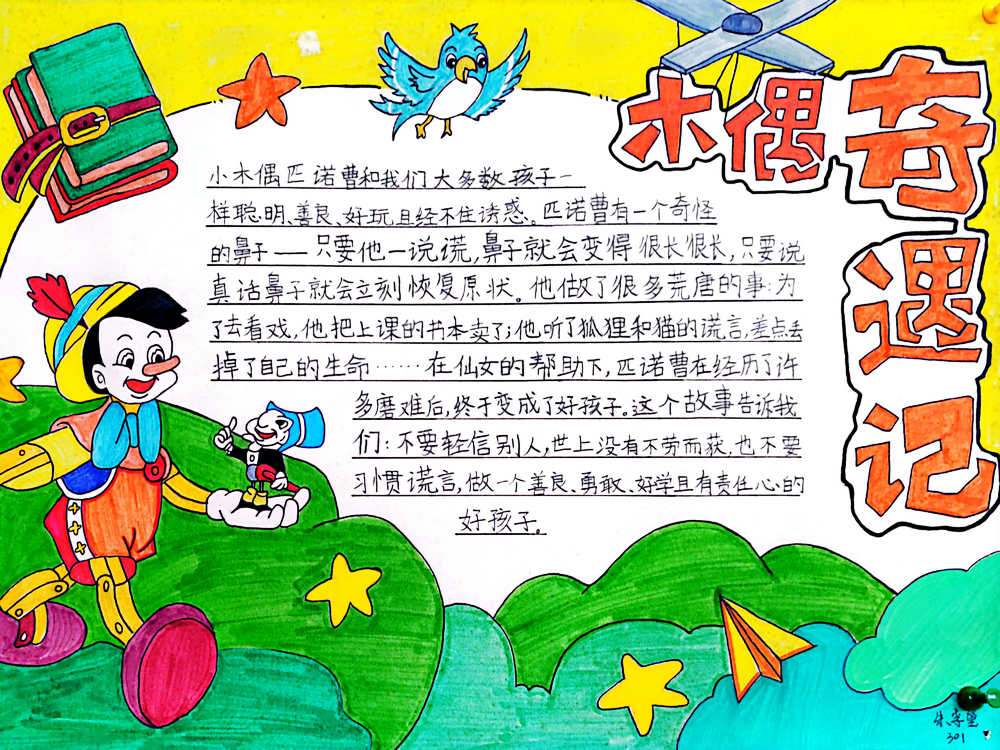 木偶奇遇记
小木偶匹诺曹和我们大多数孩子一
样聪明、善良、好玩且经不住诱惑。匹诺曹有一个奇怪
的鼻子——只要他一说谎,鼻子就会变得很长很长,只要说
真话鼻子就会立刻恢复原状。他做了很多荒唐的事:为
了去看戏,他把上课的书本卖了;他听了狐狸和猫的谎言,差点丢
掉了自己的生命……在仙女的帮助下,匹诺曹在经历了许
多磨难后,终于变成了好孩子。这个故事告诉我
们:不要轻信别人,世上没有不劳而获,也不要
习惯谎言,做一个善良、勇敢、好学且有责任心的
好孩子。
301